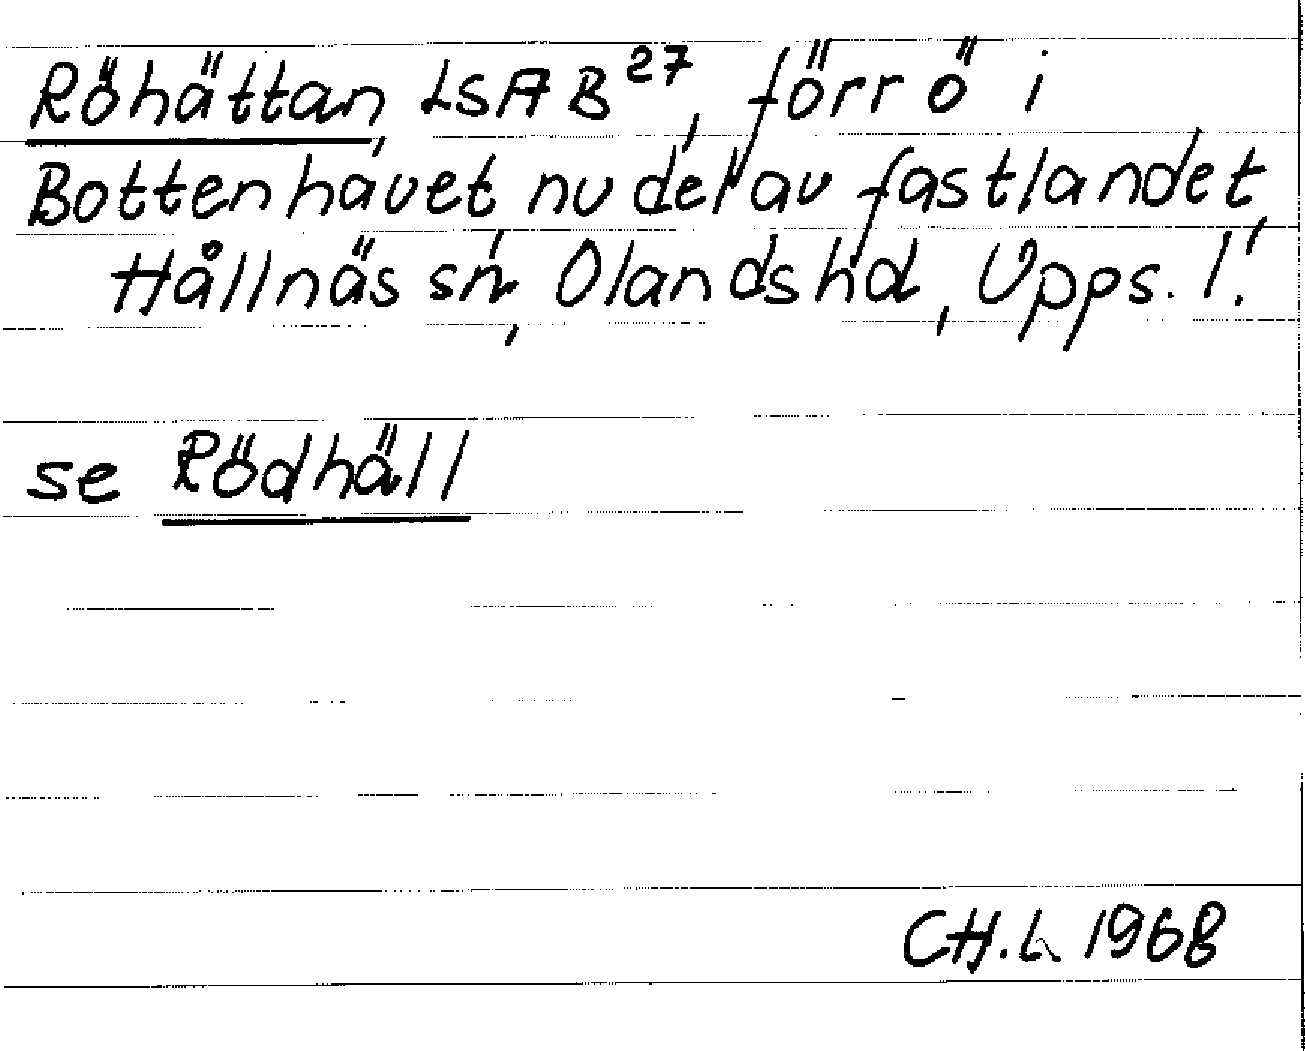 Röhättan, LSA B27, förr ö i
Bottenhavet, nu del av fastlandet,
Hållnäs sn, Olands hd, Upps. l.
se Rödhäll
CH.L. 1968